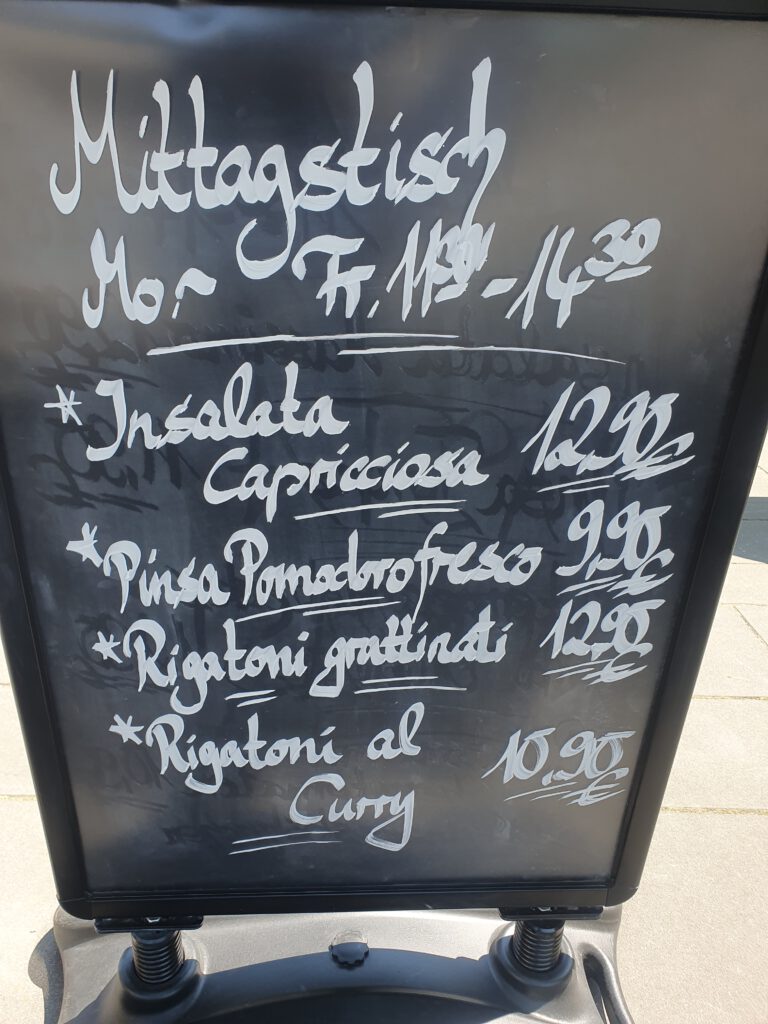 Mittagstisch
Mo. - Fr. 11³⁰ - 14³⁰
* Insalata
Capricciosa 12,90 €
* Pinsa Pomodoro fresco 9,90 €
* Rigatoni grattinati 12,90 €
* Rigatoni al
Curry 10,90 €